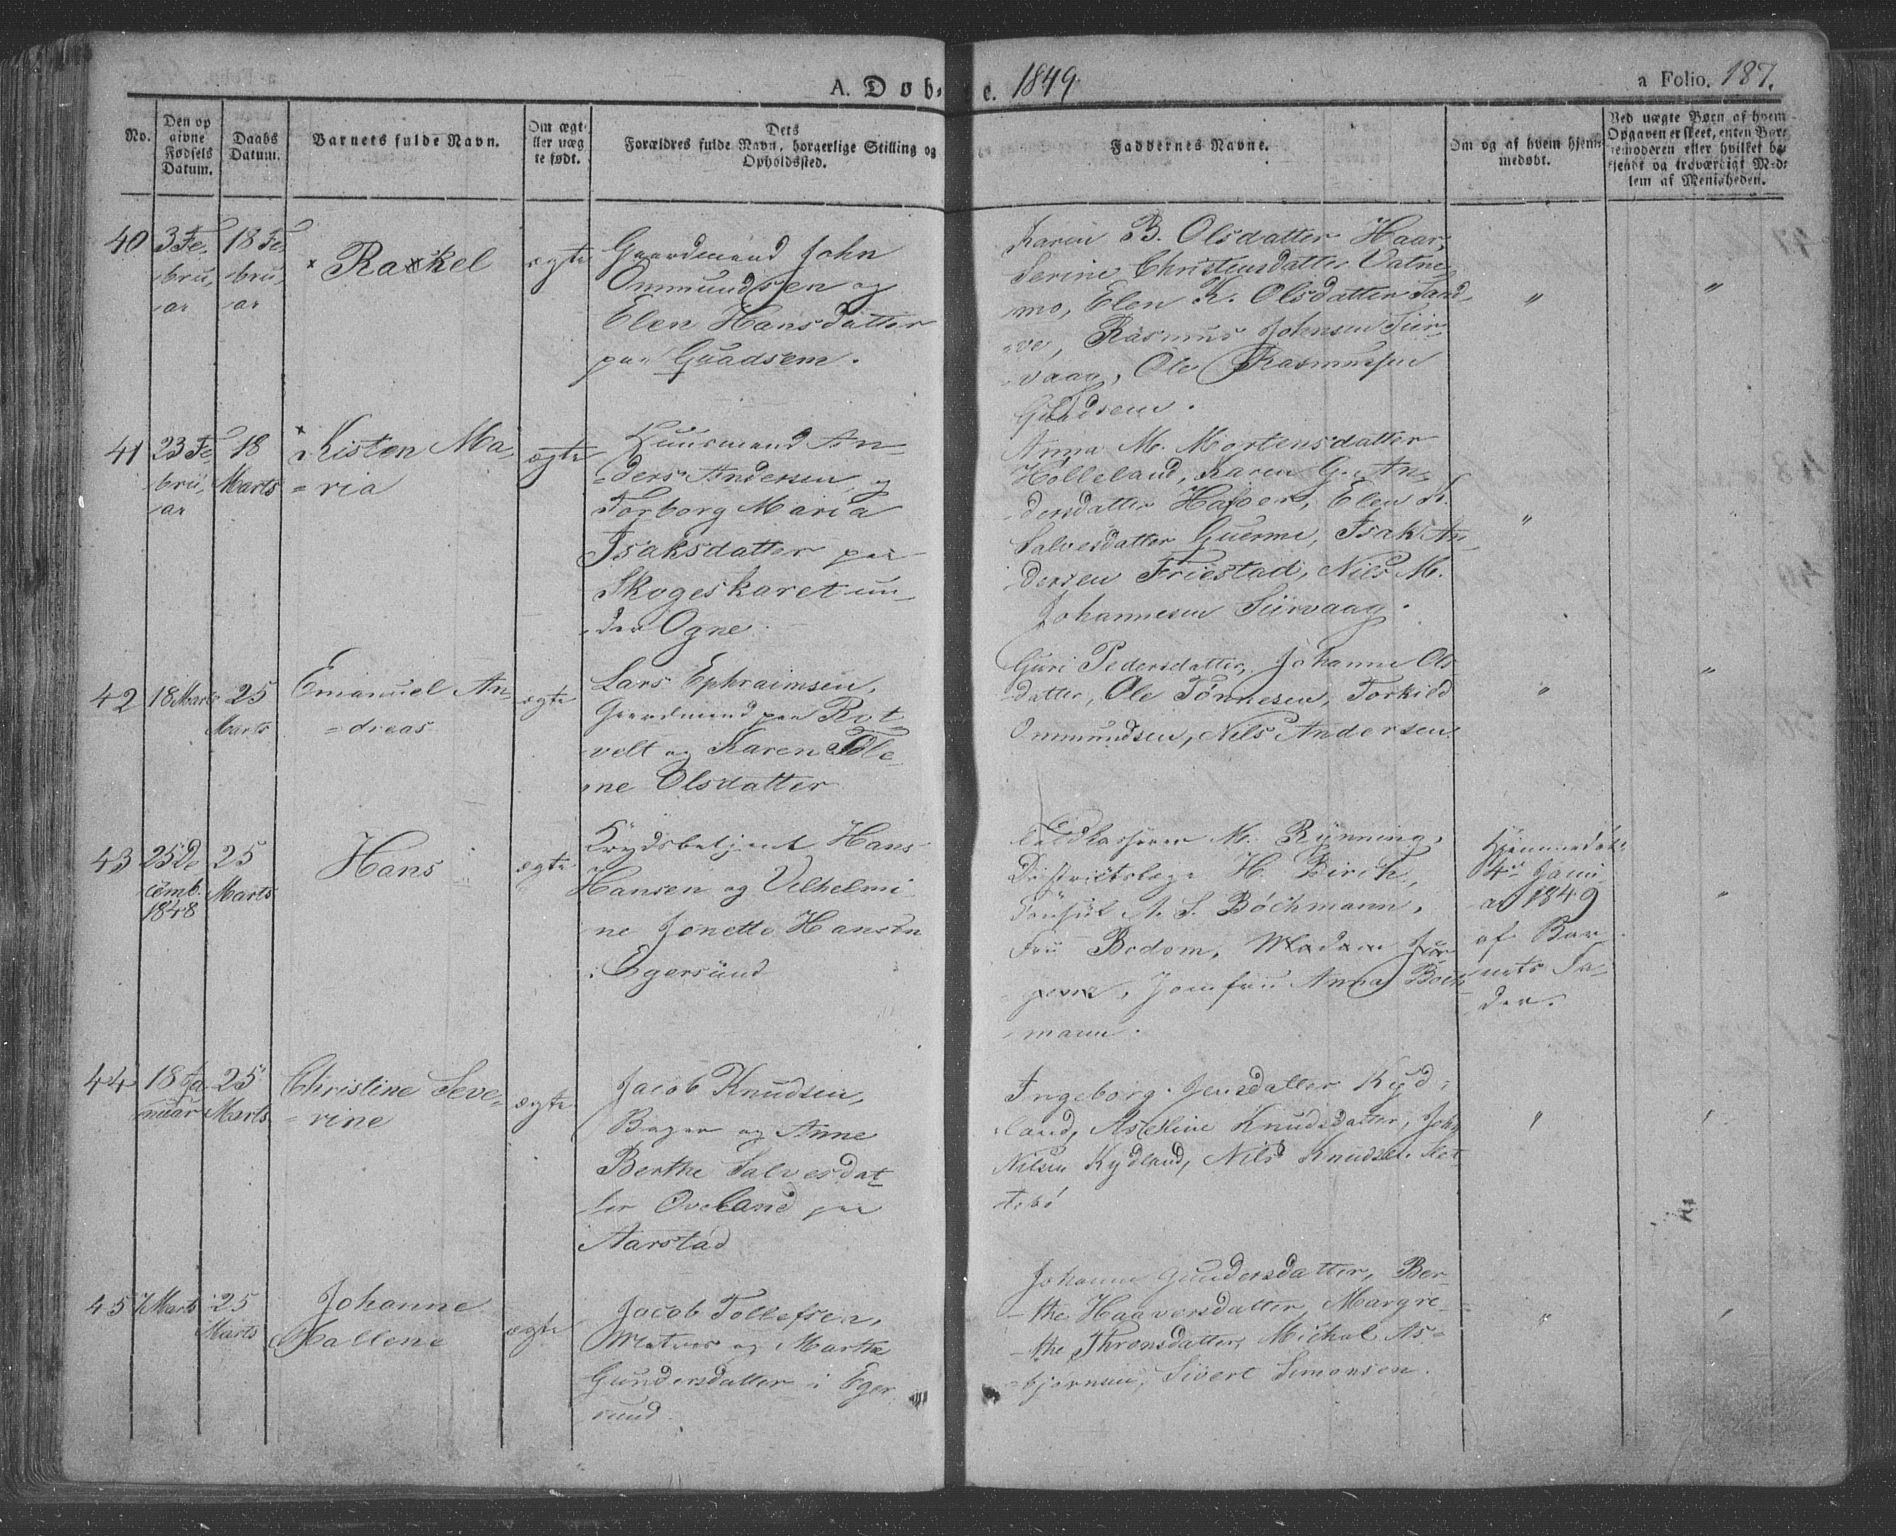 A. Døb-
e. 1849
a Folio. 187.
No.
Den op
givne
Fødsels
Datum.
Daabs
Datum.
Barnets fulde Navn.
Om ægte
eller uæg
te født.
Dets
Forældres fulde Navn, borgerlige Stilling og
Opholdssted.
Faddernes Navne.
Om og af hvem hjem
medøbt.
Ved uægte Børn af hvem
Opgaven er skeet, enten Bare
nemoderen eller hvilket be
kjendt og troværdigt Med
lem af Menigheden.
40
3 Fe,
bru,
ar
18 Fe,
bru,
ar
Rakel
ægte
Gaardmand John
Ommundsen og
Elen Hansdatter
paa Guadsem.
Karen B. Olsdatter Haar,
Serine Christensdatter Vatne
mo, Elen K. Olsdatter Sand,
ve, Rasmus Johnsen Siir
vaag, Ole Rasmussen
Guadsem.
"
"
41
23 Fe
bru,
ar
18
Marts
Kisten Ma,
=ria
ægte
Huusmand An
ders Andersen og
Torborg Maria
Isaksdatter paa
Skogeskaret un,
der Ogne.
Anna M. Mortensdatter
Holleland, Karen G. An,
dersdatter Elen K.
Salvesdatter Isak An,
dersen Friestad, Nils M.
Johannesen Siirvaag.
"
42
18 Marts
25
Marts
Emanuel An
=dreas
ægte
Lars Ephraimsen,
Gaardmand paa Rot
velt og Karen Tole
ne Olsdatter
Guri Pedersdatter, Johanne Ols
datter, Ole Tønnesen, Torkild
Ommundsen, Nils Andersen
"
"
43
25 De
cemb.
1848
25
Marts
Hans
ægte
Krydsbetjent Hans
Hansen og Vilhelmi
ne Jonette Hansen
i Egersund
Toldkasserer M. Rynning,
Districtslæge H. Birch,
Consul A. S. Böchmann,
Fru Bodom, Madam Jør
gense, Jomfru Anna Böch
mann.
Hjemmedøbt
4de Jani
ar 1849
af Bar
nets Fa,
der.
"
44
18 Ja
nuar
25
Marts
Christine Seve
=rine
ægte
Jacob Knudsen,
Bager og Anne
Berthe Salvesdat
ter Oveland paa
Aarstad
Ingeborg Jensdatter Kyd,
land, Aseline Knudsdatter, John
Nilsen Kydland, Nils Knudsen Slet
tebö
"
"
45
7 Marts
25
Marts
Johanne
Mallene
ægte
Jacob Tollefsen,
Matros og Marthe
Gundersdatter i Eger
sund.
Johanne Gundersdatter, Ber
the Haaversdatter, Margre
the Thronsdatter, Michal As=
bjørnsen, Sivert Simonsen.
"
"